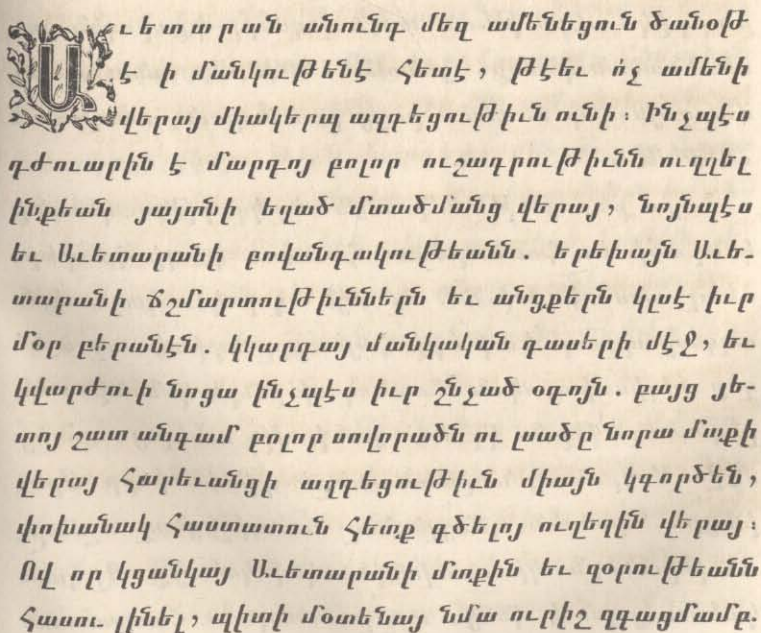 Աւետարան անունդ մեզ ամենեցուն ծանօթ
է ի մանկութենէ հետէ, թէեւ ո՛չ ամենի
վերայ միակերպ ազդեցութիւն ունի։ Ինչպէս
դժուարին է մարդոյ բոլոր ուշադրութիւնն ուղղել
ինքեան յայտնի եղած մտածմանց վերայ, նոյնպէս
եւ Աւետարանի բովանդակութեանն. երեխայն Աւե-
տարանի ճշմարտութիւններն եւ անցքերն կլսէ իւր
մօր բերանէն. կկարդայ մանկական դասերի մէջ, եւ
կվարժուի նոցա ինչպէս իւր շնչած օդոյն. բայց յե-
տոյ շատ անգամ բոլոր սովորածն ու լսածը նորա մտքի
վերայ հարեւանցի ազդեցութիւն միայն կգործեն,
փոխանակ հաստատուն հետք գծելոյ ուղեղին վերայ։
Ով որ կցանկայ Աւետարանի մտքին եւ զօրութեանն
հասու լինել, պիտի մօտենայ նմա ուրիշ զգացմամբ.